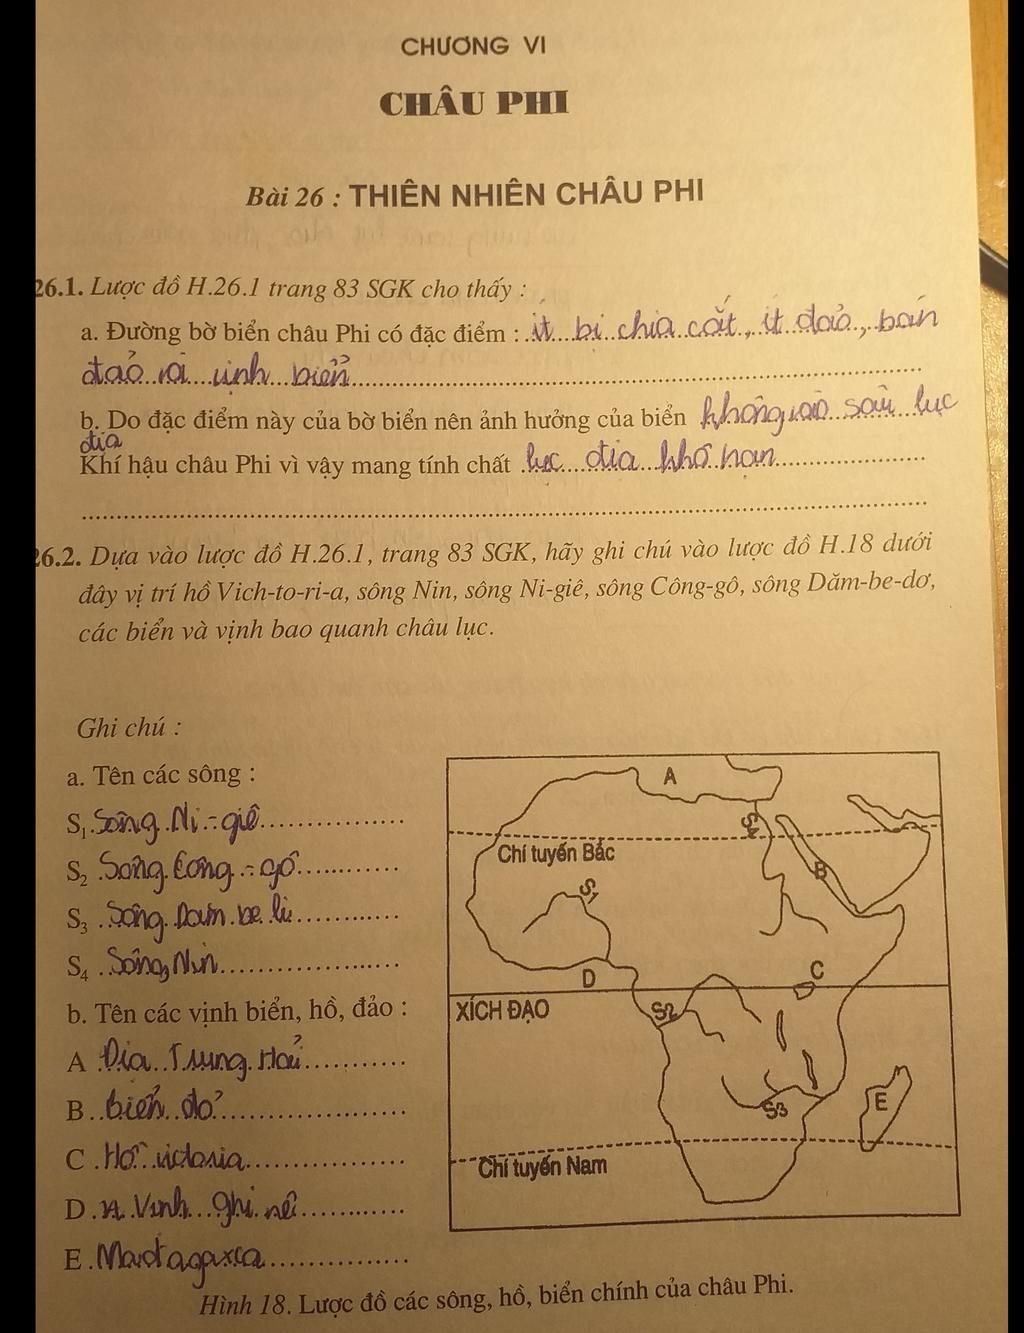 CHƯƠNG VI
CHÂU PHI
Bài 26 : THIÊN NHIÊN CHÂU PHI
26.1. Lược đồ H.26.1 trang 83 SGK cho thấy :
a. Đường bờ biển châu Phi có đặc điểm : ít bị chia cắt, ít đảo, bán
đảo và vịnh biển
b. Do đặc điểm này của bờ biển nên ảnh hưởng của biển không vào sâu lục
địa
Khí hậu châu Phi vì vậy mang tính chất lục địa khô hạn
26.2. Dựa vào lược đồ H.26.1, trang 83 SGK, hãy ghi chú vào lược đồ H.18 dưới
đây vị trí hồ Vich-to-ri-a, sông Nin, sông Ni-giê, sông Công-gô, sông Dăm-be-dơ,
các biển và vịnh bao quanh châu lục.
Ghi chú :
a. Tên các sông :
S1 Sông Ni-giê
S2 Sông Công-gô
S3 Sông
S4 Sông Nin
b. Tên các vịnh biển, hồ, đảo :
A Địa Trung Hải
B biển đỏ
C Hồ victoria
D Vịnh Ghi nê
E Mađagaxca
A
S4
Chí tuyến Bắc
B
S1
D
C
XÍCH ĐẠO
S2
S3
E
Chí tuyến Nam
Hình 18. Lược đồ các sông, hồ, biển chính của châu Phi.